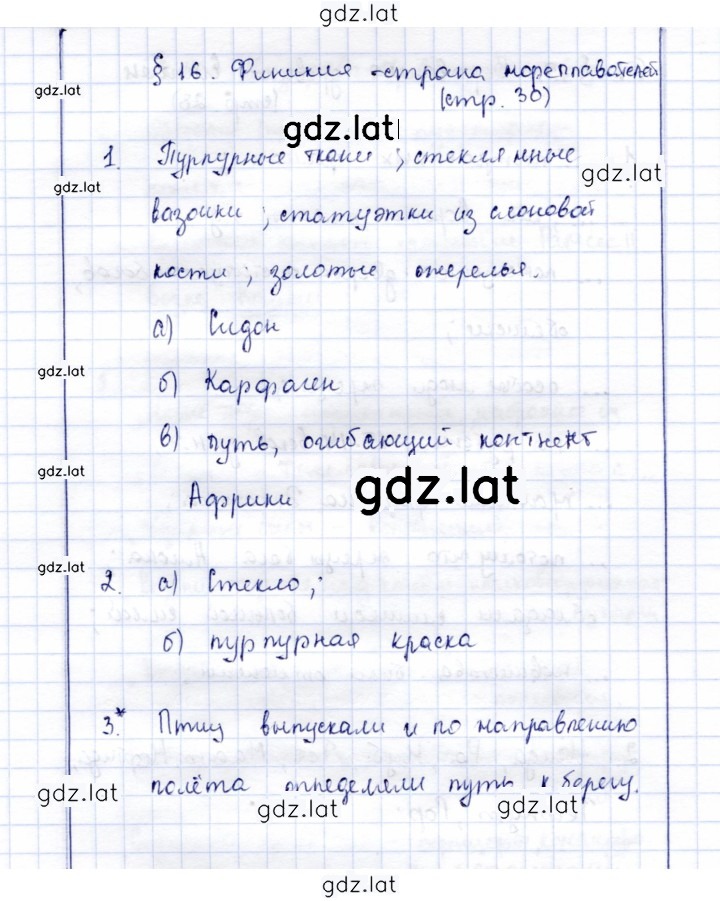 gdz.lat
§ 16. Финикия - страна мореплавателей
(стр. 30)
gdz.lat
gdz.lat
1. Пурпурные ткани; стеклянные
gdz.lat
gdz.lat
вазочки; статуэтки из слоновой
кости; золотые ожерелья.
а) Сидон
gdz.lat
б) Карфаген
в) путь, огибающий контнент
gdz.lat
Африки
gdz.lat
gdz.lat
2. а) Стекло;
б) пурпурная краска
3.* Птиц выпускали и по направлению
полёта определяли путь к берегу.
gdz.lat
gdz.lat
gdz.lat
gdz.lat